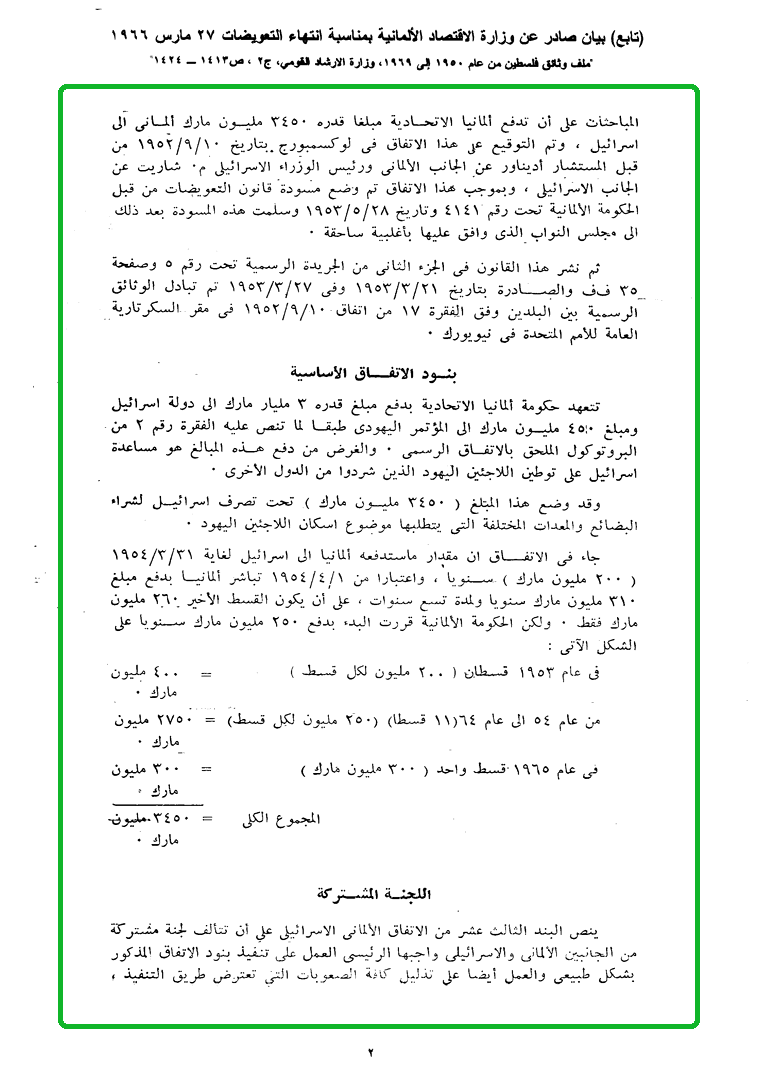 (تابع) بيان صادر عن وزارة الاقتصاد الألمانية بمناسبة انتهاء التعويضات ٢٧ مارس ١٩٦٦
"ملف وثائق فلسطين من عام ١٩٥٠ إلى ١٩٦٩، وزارة الارشاد القومي، ج٢ ، ص١٤١٣ – ١٤٢٤"
المباحثات على أن تدفع ألمانيا الاتحادية مبلغا قدره ٣٤٥٠ مليون مارك ألمانى الى
اسرائيل ، وتم التوقيع على هذا الاتفاق فى لوكسمبورج بتاريخ ١٩٥٢/٩/١٠ من
قبل المستشار أديناور عن الجانب الألمانى ورئيس الوزراء الاسرائيلى م٠ شاريت عن
الجانب الاسرائيلى ، وبموجب هذا الاتفاق تم وضع مسودة قانون التعويضات من قبل
الحكومة الألمانية تحت رقم ٤١٤١ وتاريخ ١٩٥٣/٥/٢٨ وسلمت هذه المسودة بعد ذلك
الى مجلس النواب الذى وافق عليها بأغلبية ساحقة ٠
ثم نشر هذا القانون فى الجزء الثانى من الجريدة الرسمية تحت رقم ٥ وصفحة
٣٥ ف‌ف والصادرة بتاريخ ١٩٥٣/٣/٢١ وفى ١٩٥٣/٣/٢٧ تم تبادل الوثائق
الرسمية بين البلدين وفق الفقرة ١٧ من اتفاق ١٩٥٢/٩/١٠ فى مقر السكرتارية
العامة للأمم المتحدة فى نيويورك ٠
بنود الاتفاق الأساسية
تتعهد حكومة ألمانيا الاتحادية بدفع مبلغ قدره ٣ مليار مارك الى دولة اسرائيل
ومبلغ ٤٥٠ مليون مارك الى المؤتمر اليهودى طبقا لما تنص عليه الفقرة رقم ٢ من
البروتوكول الملحق بالاتفاق الرسمى ٠ والغرض من دفع هذه المبالغ هو مساعدة
اسرائيل على توطين اللاجئين اليهود الذين شردوا من الدول الأخرى ٠
وقد وضع هذا المبلغ ( ٣٤٥٠ مليون مارك ) تحت تصرف اسرائيل لشراء
البضائع والمعدات المختلفة التى يتطلبها موضوع اسكان اللاجئين اليهود ٠
جاء فى الاتفاق ان مقدار ماستدفعه ألمانيا الى اسرائيل لغاية ١٩٥٤/٣/٣١
( ٢٠٠ مليون مارك ) سنويا ، واعتبارا من ١٩٥٤/٤/١ تباشر ألمانيا بدفع مبلغ
٣١٠ مليون مارك سنويا ولمدة تسع سنوات ، على أن يكون القسط الأخير ٢٦٠ مليون
مارك فقط ٠ ولكن الحكومة الألمانية قررت البدء بدفع ٢٥٠ مليون مارك سنويا على
الشكل الآتى :
فى عام ١٩٥٣ قسطان ( ٢٠٠ مليون لكل قسط ) = ٤٠٠ مليون
مارك ٠
من عام ٥٤ الى عام ٦٤(١١ قسطا) (٢٥٠ مليون لكل قسط) = ٢٧٥٠ مليون
مارك ٠
فى عام ١٩٦٥ قسط واحد ( ٣٠٠ مليون مارك ) = ٣٠٠ مليون
مارك ٠
المجموع الكلى = ٣٤٥٠ مليون
مارك ٠
اللجنة المشتركة
ينص البند الثالث عشر من الاتفاق الألمانى الاسرائيلى على أن تتألف لجنة مشتركة
من الجانبين الألمانى والاسرائيلى واجبها الرئيسى العمل على تنفيذ بنود الاتفاق المذكور
بشكل طبيعى والعمل أيضا على تذليل كافة الصعوبات التي تعترض طريق التنفيذ ،
٢